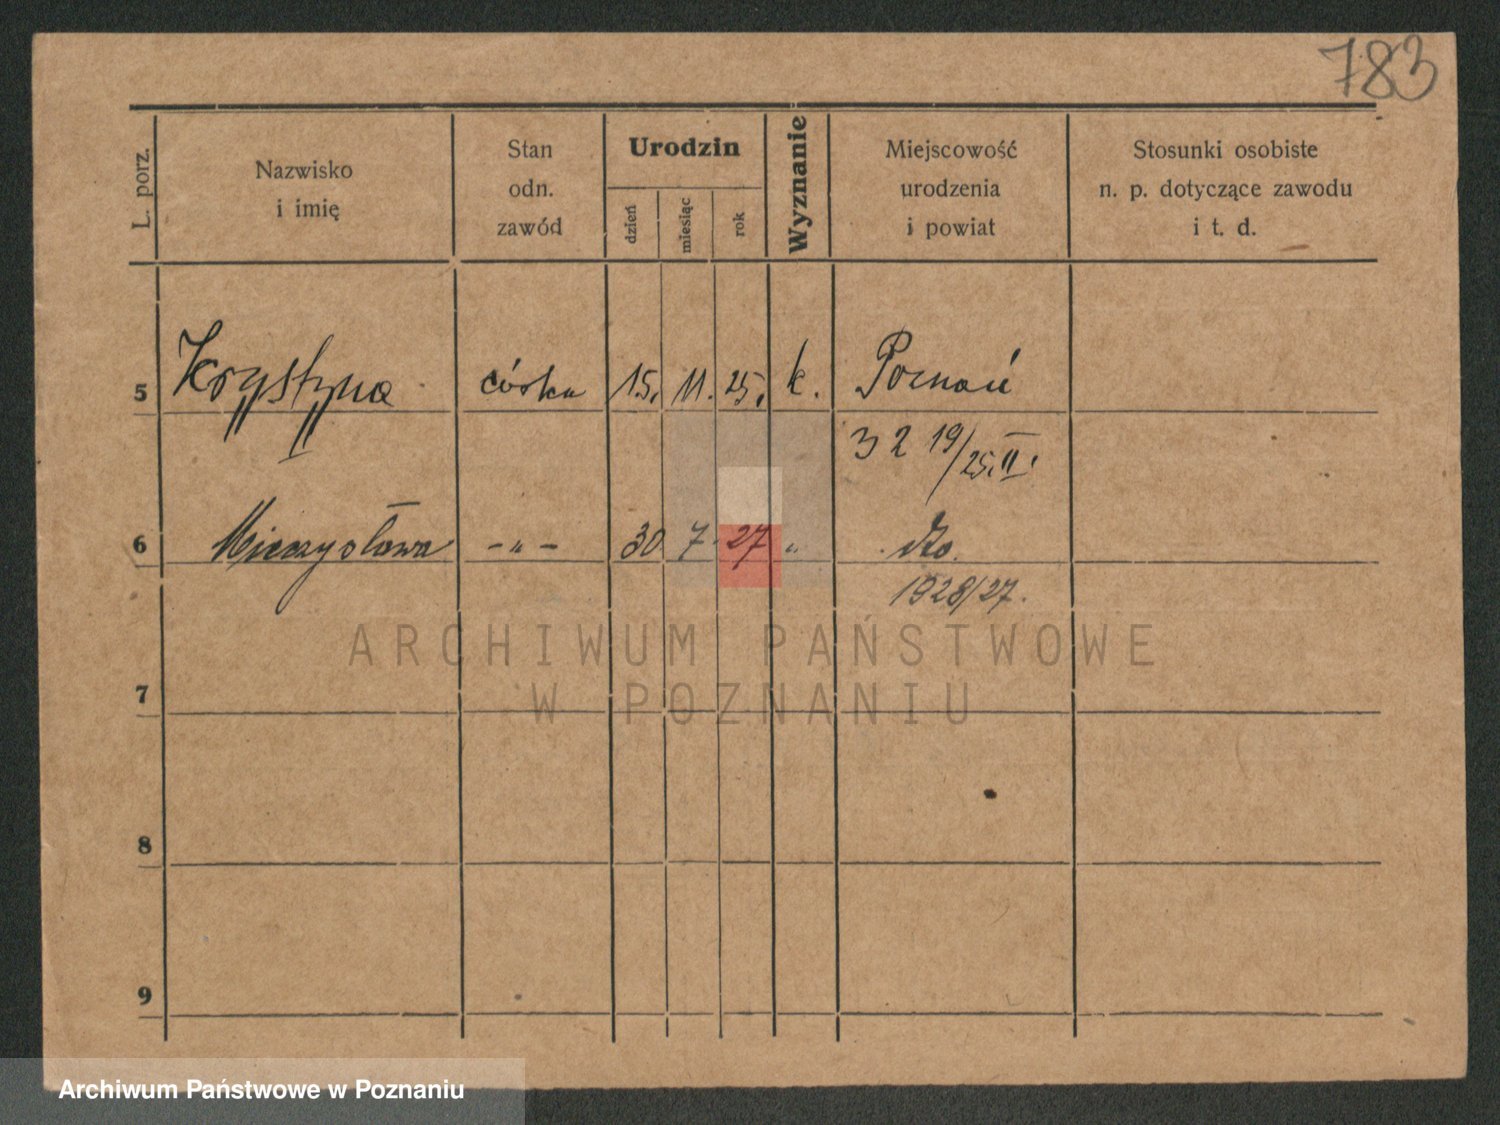 783
L. porz.
Nazwisko
i imię
Stan
odn.
zawód
Urodzin
dzień
miesiąc
rok
Wyznanie
Miejscowość
urodzenia
i powiat
Stosunki osobiste
n. p. dotyczące zawodu
i t. d.
5 Krystyna córka 15. 11. 25. k. Poznań
3219/25. II.
6 Mieczysława - " - 30 7. 27 " dto.
1928/27.
ARCHIWUM PAŃSTWOWE
W POZNANIU
7
8
9
Archiwum Państwowe w Poznaniu